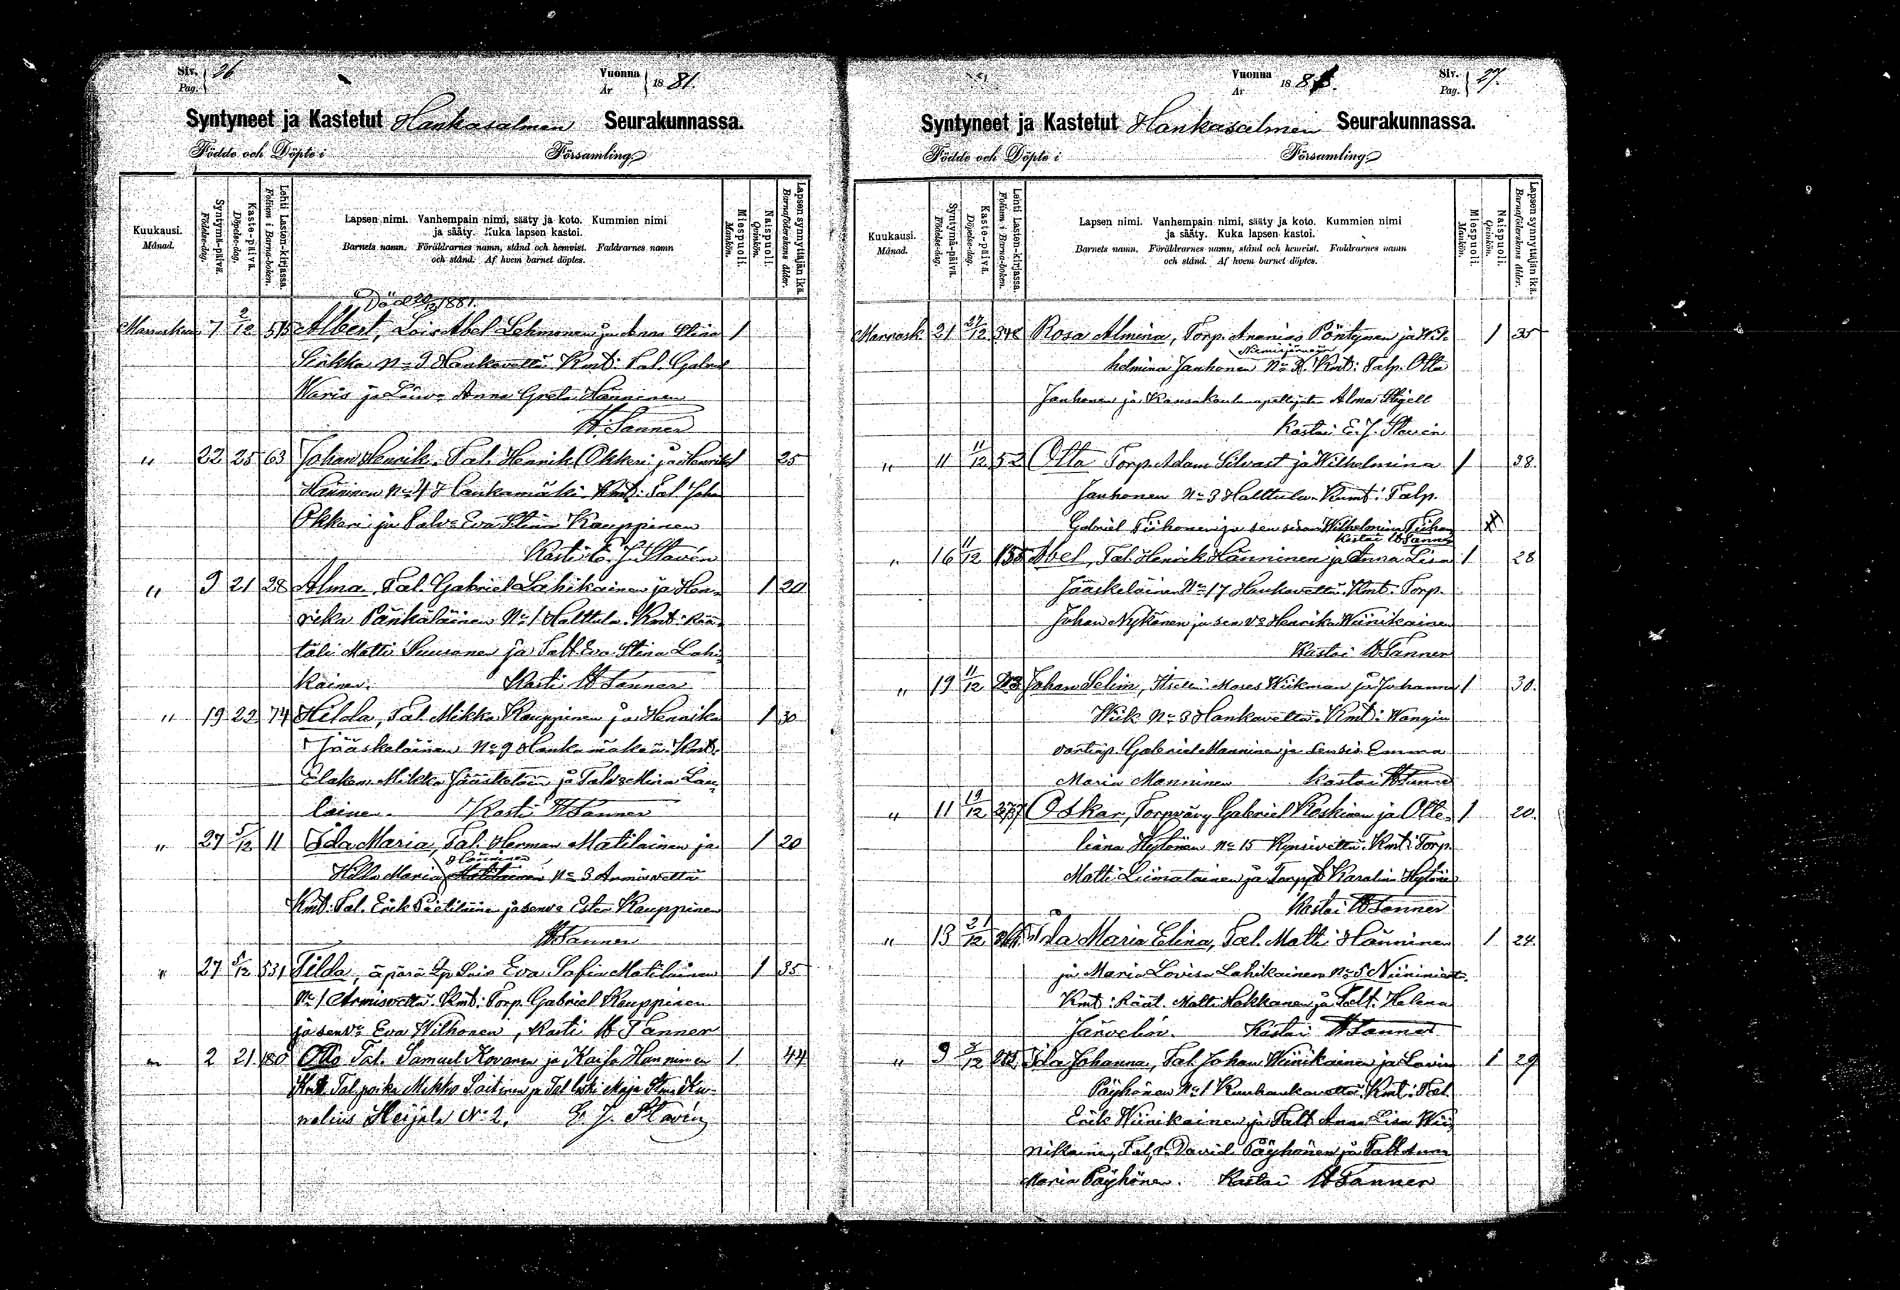 Siv. Pag. 26
Vuonna År 1881.
Syntyneet ja Kastetut Hankasalmen Seurakunnassa.
Födde och Döpte i Församling
Kuukausi. Månad.
Syntymä-päivä. Födelse-dag.
Kaste-päivä. Döpelse-dag.
Lehti Lasten-kirjassa. Folium i Barna-boken.
Lapsen nimi. Vanhempain nimi, sääty ja koto. Kummien nimi
ja sääty. Kuka lapsen kastoi.
Barnets namn. Föräldrarnes namn, stånd och hemvist. Faddrarnes namn
och stånd. Af hvem barnet döptes.
Miespuoli. Mankön.
Naispuoli. Qvinkön.
Lapsen synnyttäjän ikä. Barnaföderskans ålder.
Död 1881.
Marraskuu 7 2/12 515 Albert, Lois Abel Lehmonen ja Anna Stina 1
Sirkka No 9 Hankavetta Kmt: Tal. Gabriel
Waris ja Anna Greta Hänninen
W. Tanner
" 22 25 63 Johan Henrik. Tal. Henrik Okkeri ja Henrika 1 25
Hänninen No 4 Hankamäki. Kmt: Tal. Joh.
Okkeri ja Eva Stina Kauppinen
Kasti E. J. Stavén
" 9 21 28 Alma, Tal. Gabriel Lahikainen ja Hen-
rika Pänkäläinen No 1 Halttula. Kmt: Rää- 1 20
täli Matti Suusonen ja Talt. Eva Stina Lahi-
kainen. Kasti W Tanner
" 19 22 74 Hilda, Tal. Mikko Kauppinen ja Henrika 1 30
Jääskeläinen No 9 Hankamäkeä. Kmt:
Mikko Jääskeläin ja Mina Lau-
lainen. Kasti W Tanner
" 27 5/12 11 Ida Maria, Tal. Herman Matilainen ja 1 20
Hilda Maria Hänninen No 3 Armisvettä
Kmt: Tal. Erik Pietiläine ja senva Ester Kauppinen
W Tanner
" 27 5/12 531 Tilda, äpärä Eva Sofia Matilainen 1 35
No 1 Armisvettä. Kmt: Torp. Gabriel Kauppinen
ja senva Eva Wilhonen, Kasti W Tanner
" 2 21 180 Otto Tal. Samuel Kovanen ja Kaisa Hänninen 1 44
Kmt. Tal. poika Mikko Laitinen ja Tal. Maja Stina Ku-
nelius Heijala No 2. E. J. Stavén
Vuonna År 1881.
Siv. Pag. 27.
Syntyneet ja Kastetut Hankasalmen Seurakunnassa.
Födde och Döpte i Församling
Kuukausi. Månad.
Syntymä-päivä. Födelse-dag.
Kaste-päivä. Döpelse-dag.
Lehti Lasten-kirjassa. Folium i Barna-boken.
Lapsen nimi. Vanhempain nimi, sääty ja koto. Kummien nimi
ja sääty. Kuka lapsen kastoi.
Barnets namn. Föräldrarnes namn, stånd och hemvist. Faddrarnes namn
och stånd. Af hvem barnet döptes.
Miespuoli. Mankön.
Naispuoli. Qvinkön.
Lapsen synnyttäjän ikä. Barnaföderskans ålder.
Marrask. 21 27/12 348 Rosa Almina, Torp. Ananias Pöntynen ja Wil- 1 35
Niemijärveä
helmina Janhonen Kmt: Talp. Otto
Janhonen ja Kansakoulu Alma
Kastoi E. J. Stavén
" 11 11/12 52 Otto Torp. Adam Silvast ja Wilhelmina 1 38
Janhonen No 3 Halttula. Kmt: Talp.
Gabriel Tiihonen ja sen sisar Wilhelmina Tiihon
Kastoi W Tanner
" 16 11/12 155 Abel, Tal. Henrik Hänninen ja Anna Lisa 1 28
Jääskeläinen No 17 Hankavettä. Kmt: Torp.
Johan Nykänen ja sen va Henrika Wiinikainen
Kastoi W Tanner
" 19 11/12 Johan Selim, Moses Wiikman ja Johanna 1 30.
Wiik No 3 Hankavettä. Kmt: Wangin
vartija Gabriel Manninen ja Emma
Maria Manninen Kastoi W Tanner
" 11 19/12 Oskar, Torpvävy Gabriel Koskinen ja Otte- 1 20.
liana Hytönen No 15 Kynsivettä. Kmt: Torp.
Matti Liimatainen ja Karolina Hytönen
Kastoi W Tanner
" 13 21/12 Ida Maria Elina, Tal. Matti Hänninen 1 24.
ja Maria Lovisa Lahikainen No 5
Kmt: Räät. Matti Hakkanen ja Talt. Helena
Järvelin. Kastoi W Tanner
" 9 3/12 Ida Johanna, Tal. Johan Wiinikainen ja Lovisa 1 29
Päyhönen No 1 Kuuhankavettä. Kmt: Tal.
Erik Wiinikainen ja Talt Anna Lisa Wii-
nikaine, Tal.p. David Päyhönen ja Talt Anna
Maria Päyhönen. Kastoi W Tanner